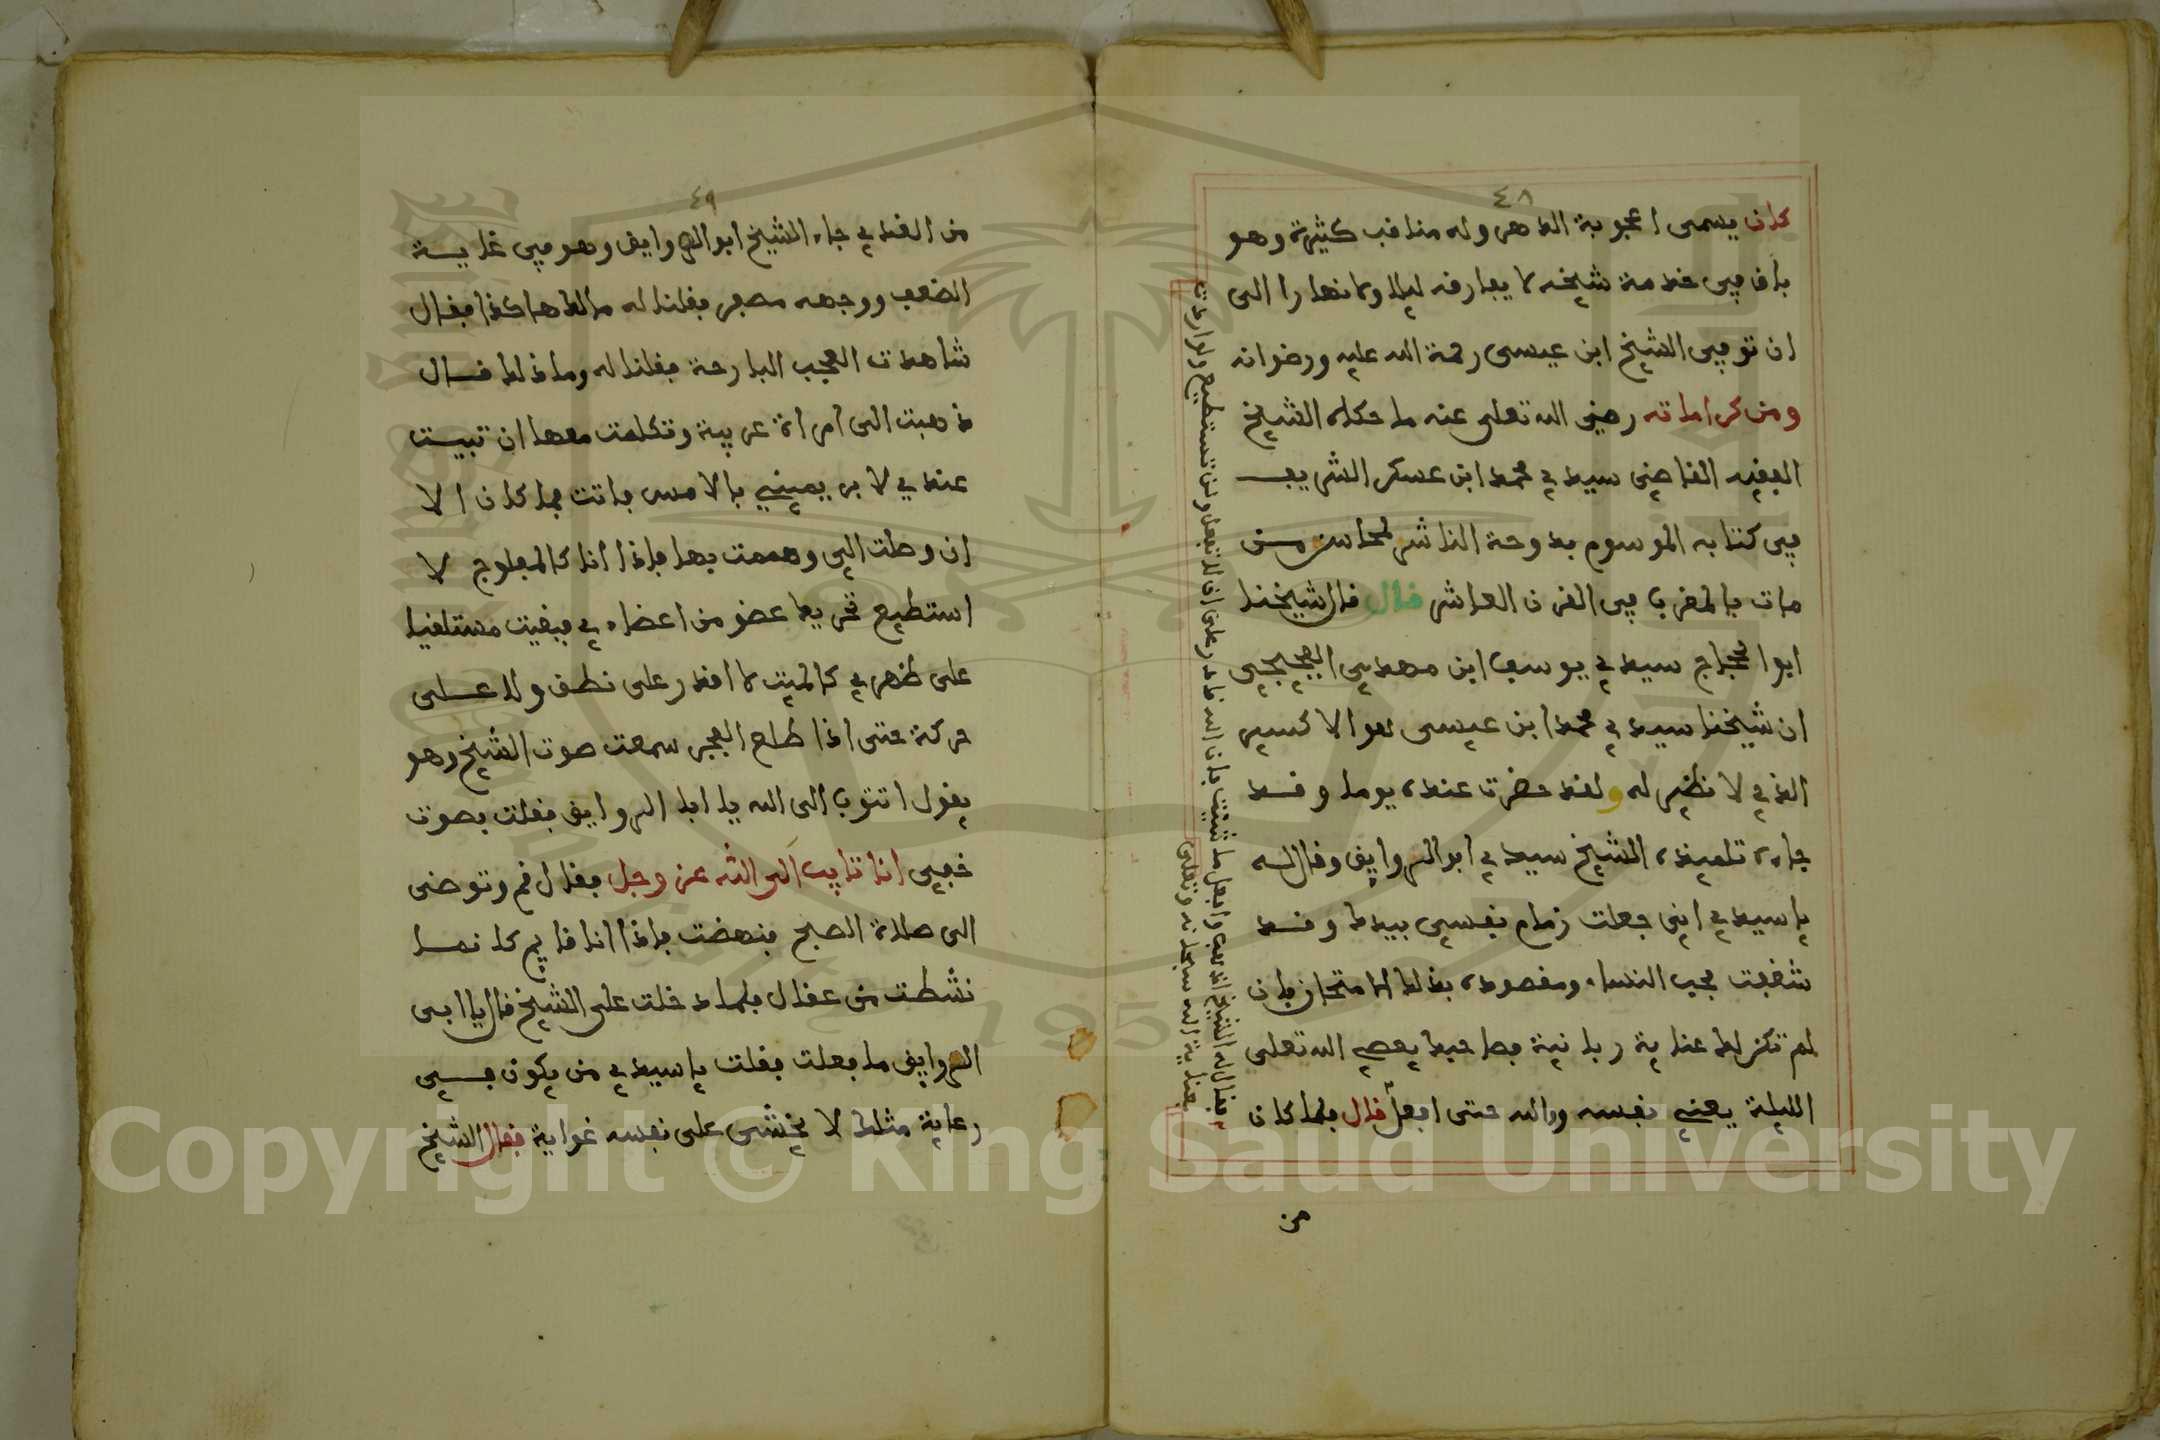 ٤٨
كان يسمى اعجوبة الدهر وله مناقب كثيرة وهو
باق في خدمة شيخه لا يفارقه ليلا ولا نهارا الى
ان توفي الشيخ ابن عيسى رحمة الله عليه ورضوانه
ومن كراماته رضي الله تعلى عنه ما حكاه الشيخ
الفقيه القاضي سيدي محمد ابن عسكر الشريف
في كتابه الموسوم بدوحة الناشر لمحاسن من
مات بالمغرب في القرن العاشر قال قال شيخنا
ابوا الحجاج سيدي يوسف ابن مهدي الفجيجي
ان شيخنا سيدي محمد ابن عيسى لهو الاكسير
الذي لا نظير له ولقد حضرت عنده يوما وقد
جاءه تلميذه الشيخ سيدي ابو الروايق وقال له
يا سيدي اني جعلت زمام نفسي بيدك وقد
شغفت بحب النساء ومقصوده بذلك الامتحان فان
لم تكن لك عناية ربانية فصاحبك يعصي الله تعلى
الليلة يعني نفسه والله حتى افعل قال فلما كان
من
فقال له الشيخ اذهب وافعل ما شيت فان الله قادر على ان لا تفعل ولن تستطيع ولو اردت
بعناية الله سبحانه وتعلى
٤٩
من الغد ي جاء الشيخ ابو الروايق وهو في غاية
الضعف ووجهه مصفر فقلنا له مالك هاكذا فقال
شاهدت العجب البارحة فقلنا له وما ذلك قال
ذهبت الى امراة عربية وتكلمت معها ان تبيت
عندي لابر يميني بالامس فاتت فما كان الا
ان وصلت الي وهممت بها فاذا انا كالمفلوج لا
استطيع تحريك عضو من اعضاءي فبقيت مستلقيا
على ظهري كالميت لا اقدر على نطق ولا على
حركة حتى اذا طلع الفجر سمعت صوت الشيخ وهو
يقول اتتوب الى الله يا ابا الروايق فقلت بصوت
خفي انا تايب الى الله عز وجل فقال قم وتوضى
الى صلاة الصبح فنهضت فاذا انا قايم كانما
نشطت من عقال فلما دخلت على الشيخ قال يا ابى
الروايق ما فعلت فقلت يا سيدي من يكون في
رعاية مثلك لا يخشى على نفسه غواية فقال الشيخ
Copyright © King Saud University
1957